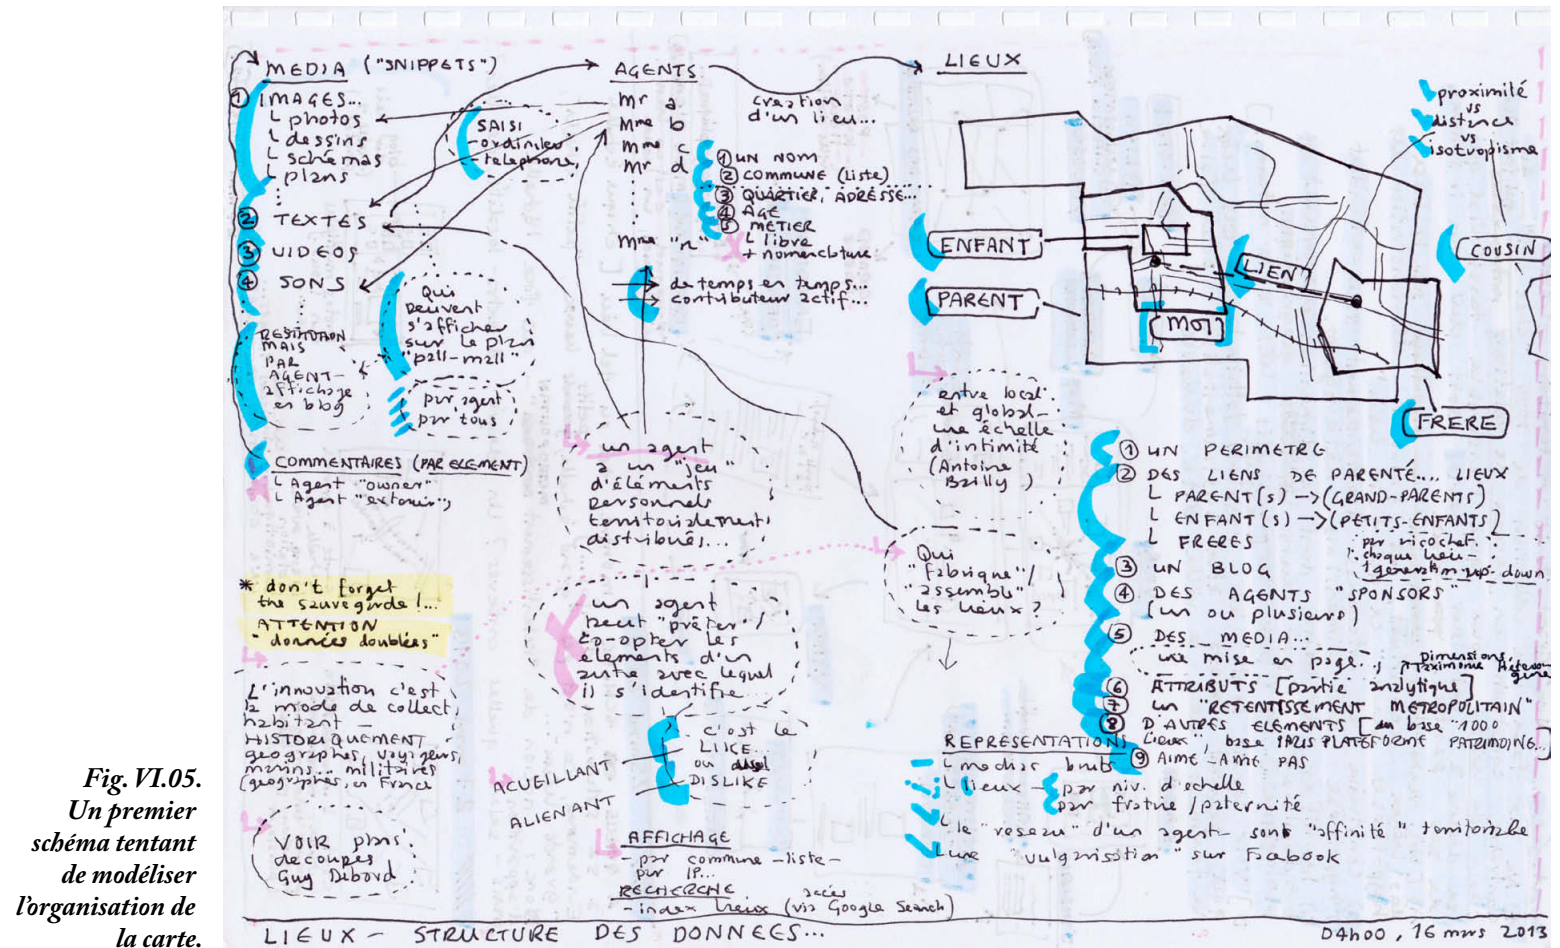 MEDIA ("SNIPPETS")
① IMAGES...
└ photos
└ dessins
└ schémas
└ plans
② TEXTES
③ VIDEOS
④ SONS
RESTITUTION
MAIS
PAR
AGENT -
affichage
en blog
COMMENTAIRES (PAR ELEMENT)
└ Agent "owner"
└ Agent "exterieur"
SAISI
- ordinateur
- telephone,
Qui
peuvent
s'afficher
sur le plan
"pall-mall"
par agent
par tous
* don't forget
the sauvegarde !...
ATTENTION
"données doublées"
L'innovation c'est
le mode de collect,
habitant -
HISTORIQUEMENT
geographes, voyageurs,
marins... militaires
(geographes, en France
VOIR plans
decoupes
Guy Debord.
AGENTS
Mr a
Mme b
Mme c
Mr d
Mme "n"
creation
d'un lieu...
① UN NOM
② COMMUNE (liste)
③ QUARTIER, ADRESSE...
④ AGE
⑤ METIER
└ libre
+ nomenclature
de temps en temps...
contributeur actif...
un agent
a un "jeu"
d'éléments
personnels
territorialement
distribués...
un agent
peut "prêter" /
co-opter les
elements d'un
autre avec lequel
il s'identifie...
c'est le
LIKE...
ou
DISLIKE
ACUEILLANT
ALIENANT
AFFICHAGE
- par commune - liste -
par IP...
RECHERCHE
- index lieux (via Google Search)
accès
LIEUX
proximité
vs
distance
vs
isotropisme
ENFANT
PARENT
LIEN
MOT
COUSIN
FRERE
entre local
et global -
une échelle
d'intimité
(Antoine
Bailly)
Qui
"fabrique" /
"assemble"
les lieux ?
① UN PERIMETRE
② DES LIENS DE PARENTÉ.... LIEUX
└ PARENT(s) -> (GRAND-PARENTS)
└ ENFANT(s) -> (PETITS-ENFANTS)
└ FRERES
par ricochet.
chaque lieu -
1 generation up-down
③ UN BLOG
④ DES AGENTS "SPONSORS"
(un ou plusieurs)
⑤ DES MEDIA...
une mise en page.,
Dimensions,
⑥ ATTRIBUTS [partie analytique]
⑦ un "RETENTISSEMENT METROPOLITAIN"
⑧ D'AUTRES ELEMENTS [du base "1000
lieux", base PLATEFORME PATRIMOINE...]
⑨ AIME - AIME PAS
REPRESENTATIONS
└ medias bruts
└ lieux - par niv. d'echelle
par fratrie / paternité
└ le "reseau" d'un agent - sont "affinité" territoriale
└ une "vulgarisation" sur Facebook
LIEUX - STRUCTURE DES DONNEES...
04h00, 16 mars 2013
Fig. VI.05.
Un premier
schéma tentant
de modéliser
l'organisation de
la carte.